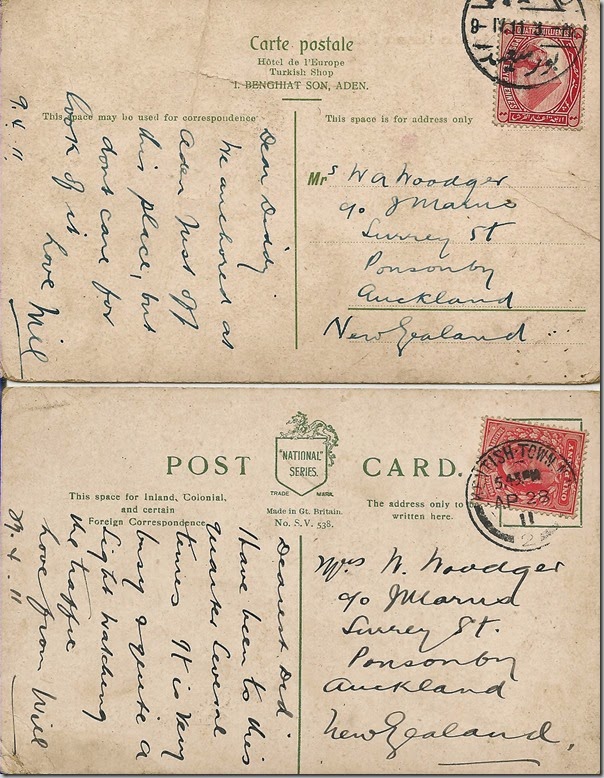 Carte postale
Hôtel de l'Europe
Turkish Shop
I. BENGHIAT SON, ADEN.
This space may be used for correspondence
This space is for address only
9-IV 11
9.4.11.
Dear Diddy
We anchored at
Aden just off
this place, but
dont care for
look of it
Love Will
Mrs W A Woodger
c/o J Marns
Surrey St
Ponsonby
Auckland
New Zealand
POST CARD.
"NATIONAL"
SERIES.
TRADE MARK.
This space for Inland, Colonial,
and certain
Foreign Correspondence.
Made in Gt. Britain.
No. S.V. 538.
The address only to
written here.
TISH-TOWN
AP 28
11
.4.11
Dearest Did
Have been to this
quarter several
times It is very
busy & quite a
sight watching
the traffic
Love from Will
Mrs W. Woodger
c/o J Marns
Surrey St.
Ponsonby
Auckland
New Zealand,